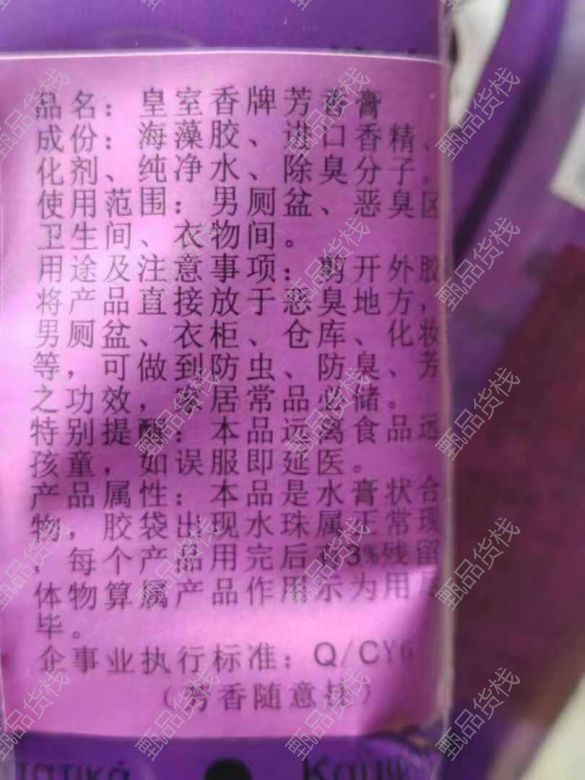 品名：皇室香牌芳香膏
成份：海藻胶、进口香精、
化剂、纯净水、除臭分子。
使用范围：男厕盆、恶臭区
卫生间、衣物间。
用途及注意事项：剪开外胶
将产品直接放于恶臭地方，
男厕盆、衣柜、仓库、化妆
等，可做到防虫、防臭、芳
之功效，家居常品必储。
特别提醒：本品远离食品远
孩童，如误服即延医。
产品属性：本品是水膏状合
物，胶袋出现水珠属于常现
，每个产品用完后有3%残留
体物算属产品作用示为用
毕。
企事业执行标准：Q/CY6
（芳香随意抹）
τατικά
甄品货栈